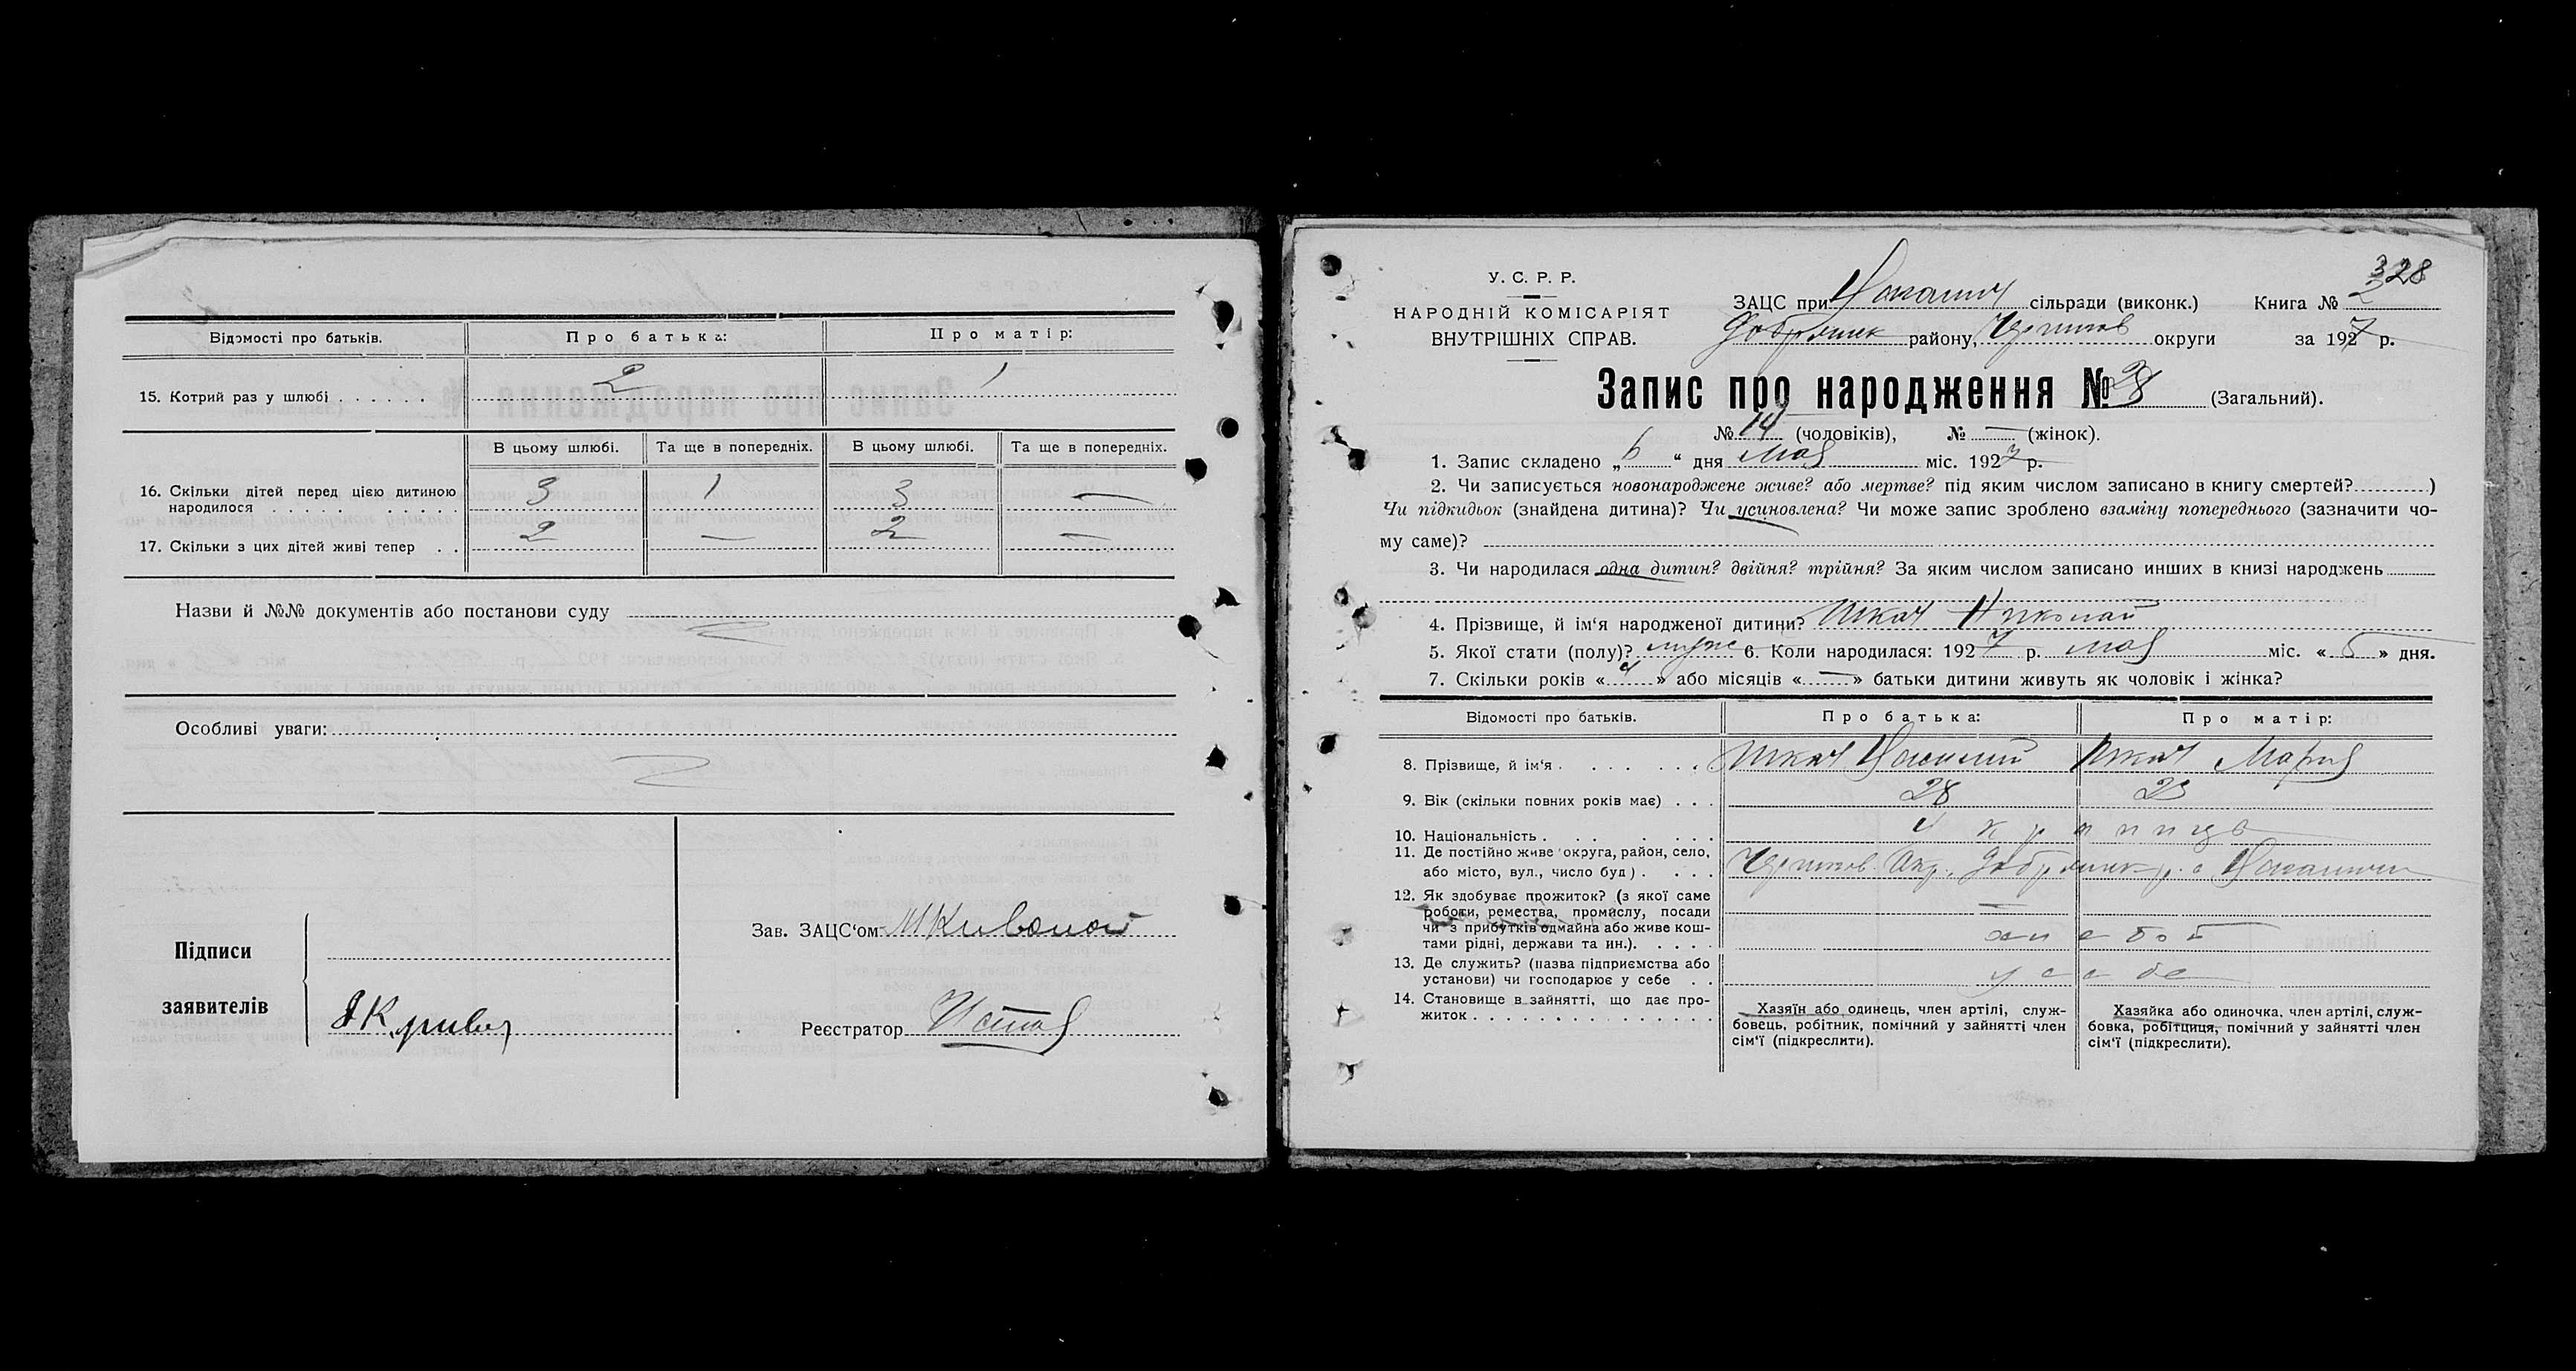 Відомості про батьків. Про батька: Про матір:
15. Котрий раз у шлюбі 2 1
В цьому шлюбі. Та ще в попередніх. В цьому шлюбі. Та ще в попередніх.
16. Скільки дітей перед цією дитиною
народилося 3 1 3 —
17. Скільки з цих дітей живі тепер 2 — 2 —
Назви й №№ документів або постанови суду
Особливі уваги:
Підписи
заявителів
Зав. ЗАЦС‘ом
Реєстратор
У. С. Р. Р.
НАРОДНІЙ КОМІСАРІЯТ
ВНУТРІШНІХ СПРАВ.
328
ЗАЦС при сільради (виконк.) Книга № 2
Добрянск району, Чернигов округи за 1927 р.
Запис про народження № 28 (Загальний).
№ 14 (чоловіків), № — (жінок).
1. Запис складено „6“ дня мая міс. 1927 р.
2. Чи записується новонароджене живе? або мертве? під яким числом записано в книгу смертей? )
Чи підкидьок (знайдена дитина)? Чи усиновлена? Чи може запис зроблено взаміну попереднього (зазначити чо-
му саме)?
3. Чи народилася одна дитин? двійня? трійня? За яким числом записано инших в книзі народжень
4. Прізвище, й ім‘я народженої дитини? Шкач Николай
5. Якої стати (полу)? мужс 6. Коли народилася: 1927 р. мая міс. «5» дня.
7. Скільки років «4» або місяців «—» батьки дитини живуть як чоловік і жінка?
Відомості про батьків. Про батька: Про матір:
8. Прізвище, й ім‘я Шкач Шкач Мария
9. Вік (скільки повних років має) 28 23
10. Національність украинцв
11. Де постійно живе округа, район, село,
або місто, вул., число буд) Чернигов Окр. Добрянск р. с
12. Як здобуває прожиток? (з якої саме
роботи, ремества, промислу, посади
чи з прибутків одмайна або живе кош-
тами рідні, держави та ин.). хлебоп
13. Де служить? (назва підприємства або
установи) чи господарює у себе у себе
14. Становище в зайнятті, що дає про-
житок
Хазяїн або одинець, член артілі, служ-
бовець, робітник, помічний у зайнятті член
сім‘ї (підкреслити).
Хазяйка або одиночка, член артілі, служ-
бовка, робітциця, помічний у зайнятті член
сім‘ї (підкреслити).